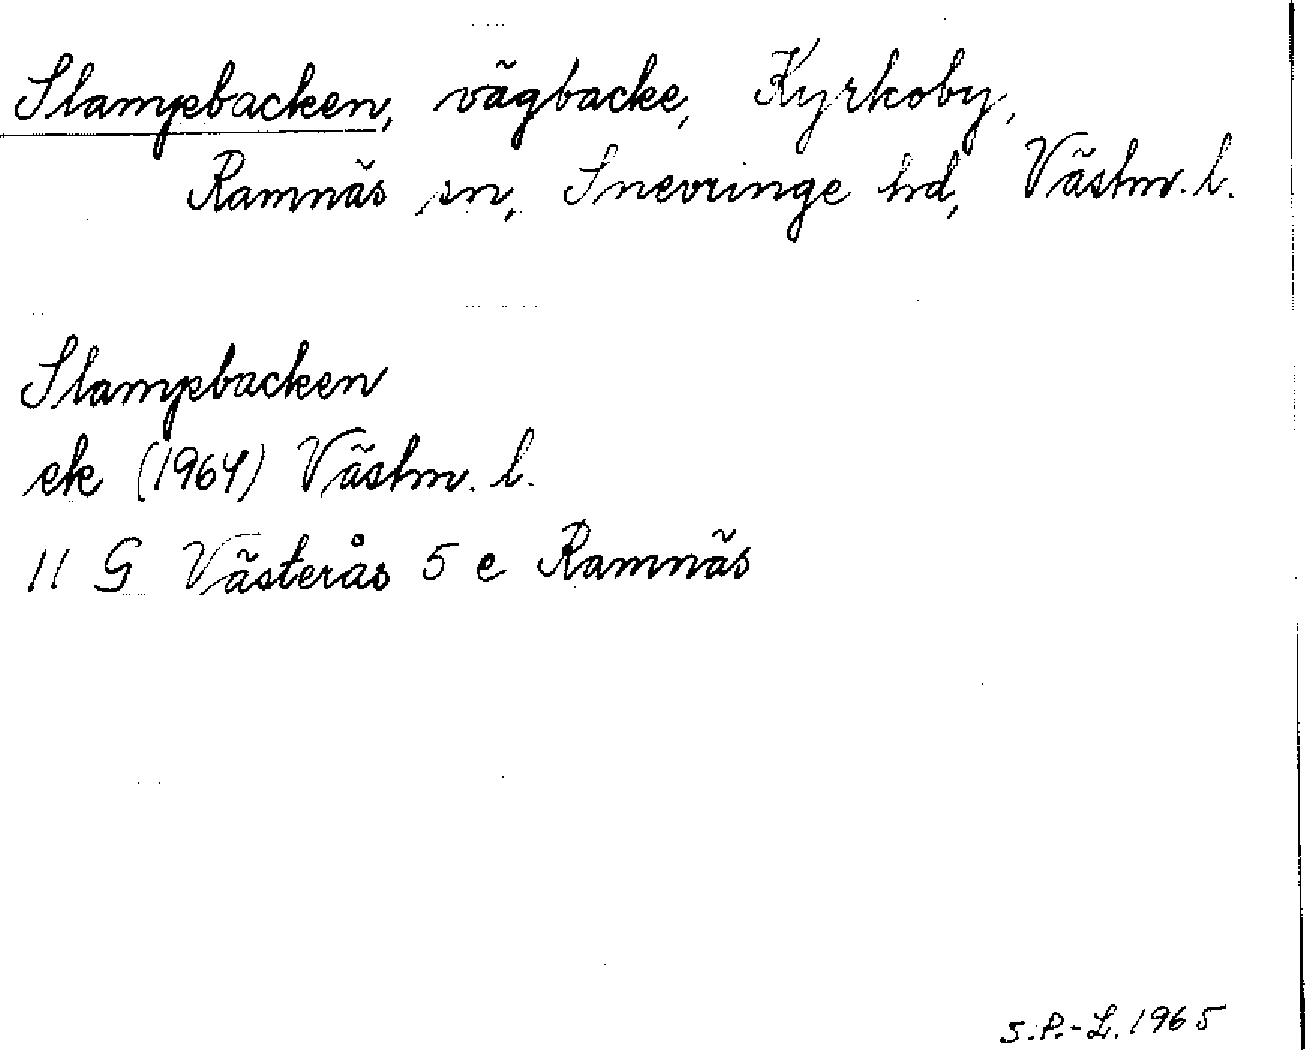 Stampebacken, vägbacke, Kyrkoby,
Ramnäs sn, Snevringe hd, Västm. l.
Stampebacken
ek (1964) Västm. l.
11 G Västerås 5 e Ramnäs
S.P.-L. 1965